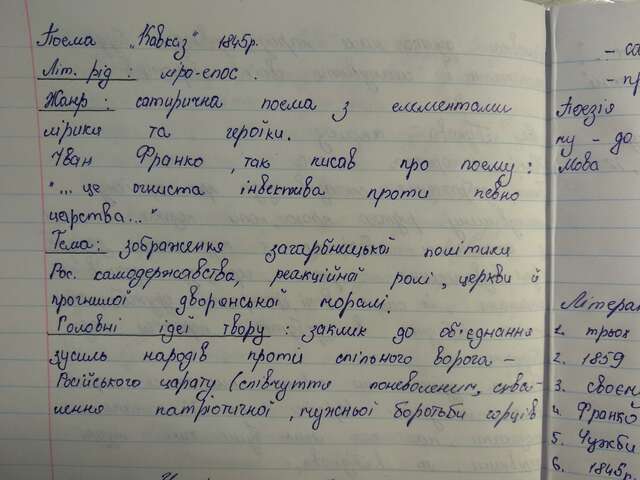 Поема „Кавказ" 1845р.
Літ. рід : ліро-епос .
Жанр : сатирична поема з елементами
лірики та героїки.
Іван Франко , так писав про поему :
"... це огниста інвектива проти певно
царства..."
Тема: зображення загарбницької політики
Рос. самодержавства, реакційної ролі , церкви й
прогнилої дворянської моралі.
Головні ідеї твору : заклик до об'єднання
зусиль народів проти спільного ворога –
Російського царату (співчуття поневоленим, схва-
лення патріотичної , мужньої боротьби горців
- са
- пр
Поезія
ну - до
Мова
Літера
1. трьох
2. 1859
3. своєм
4. Франко
5. Чужби
6. 1845р